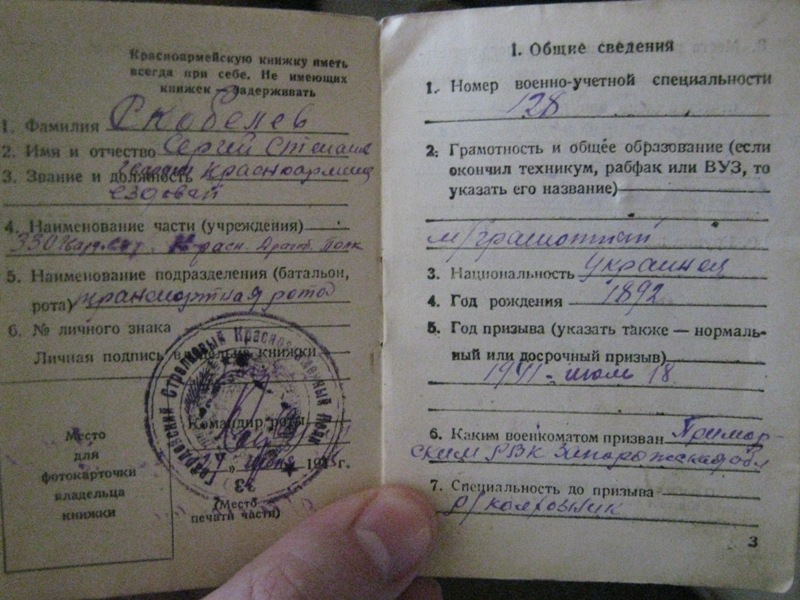 Красноармейскую книжку иметь
всегда при себе. Не имеющих
книжек — задерживать
1. Фамилия Скобелев
2. Имя и отчество Сергей Степан
3. Звание и должность Красноармеец
ездовой
4. Наименование части (учреждения)
Красн. Полк
5. Наименование подразделения (батальон,
рота) транспортная рота
6. № личного знака
Личная подпись владельца книжки
Командир роты
июня 1945г.
(Место
печати части)
Место
для
фотокарточки
владельца
книжки
Гвардейский Стрелковый Краснознаменный Полк
33
1. Общие сведения
1. Номер военно-учетной специальности
128
2. Грамотность и общее образование (если
окончил техникум, рабфак или ВУЗ, то
указать его название)
м/грамотный
3. Национальность Украинец
4. Год рождения 1892
5. Год призыва (указать также — нормаль-
ный или досрочный призыв)
1941 - июль 18
6. Каким военкоматом призван Примор-
ским РВК Запорожская обл
7. Специальность до призыва
р/колхозник
3